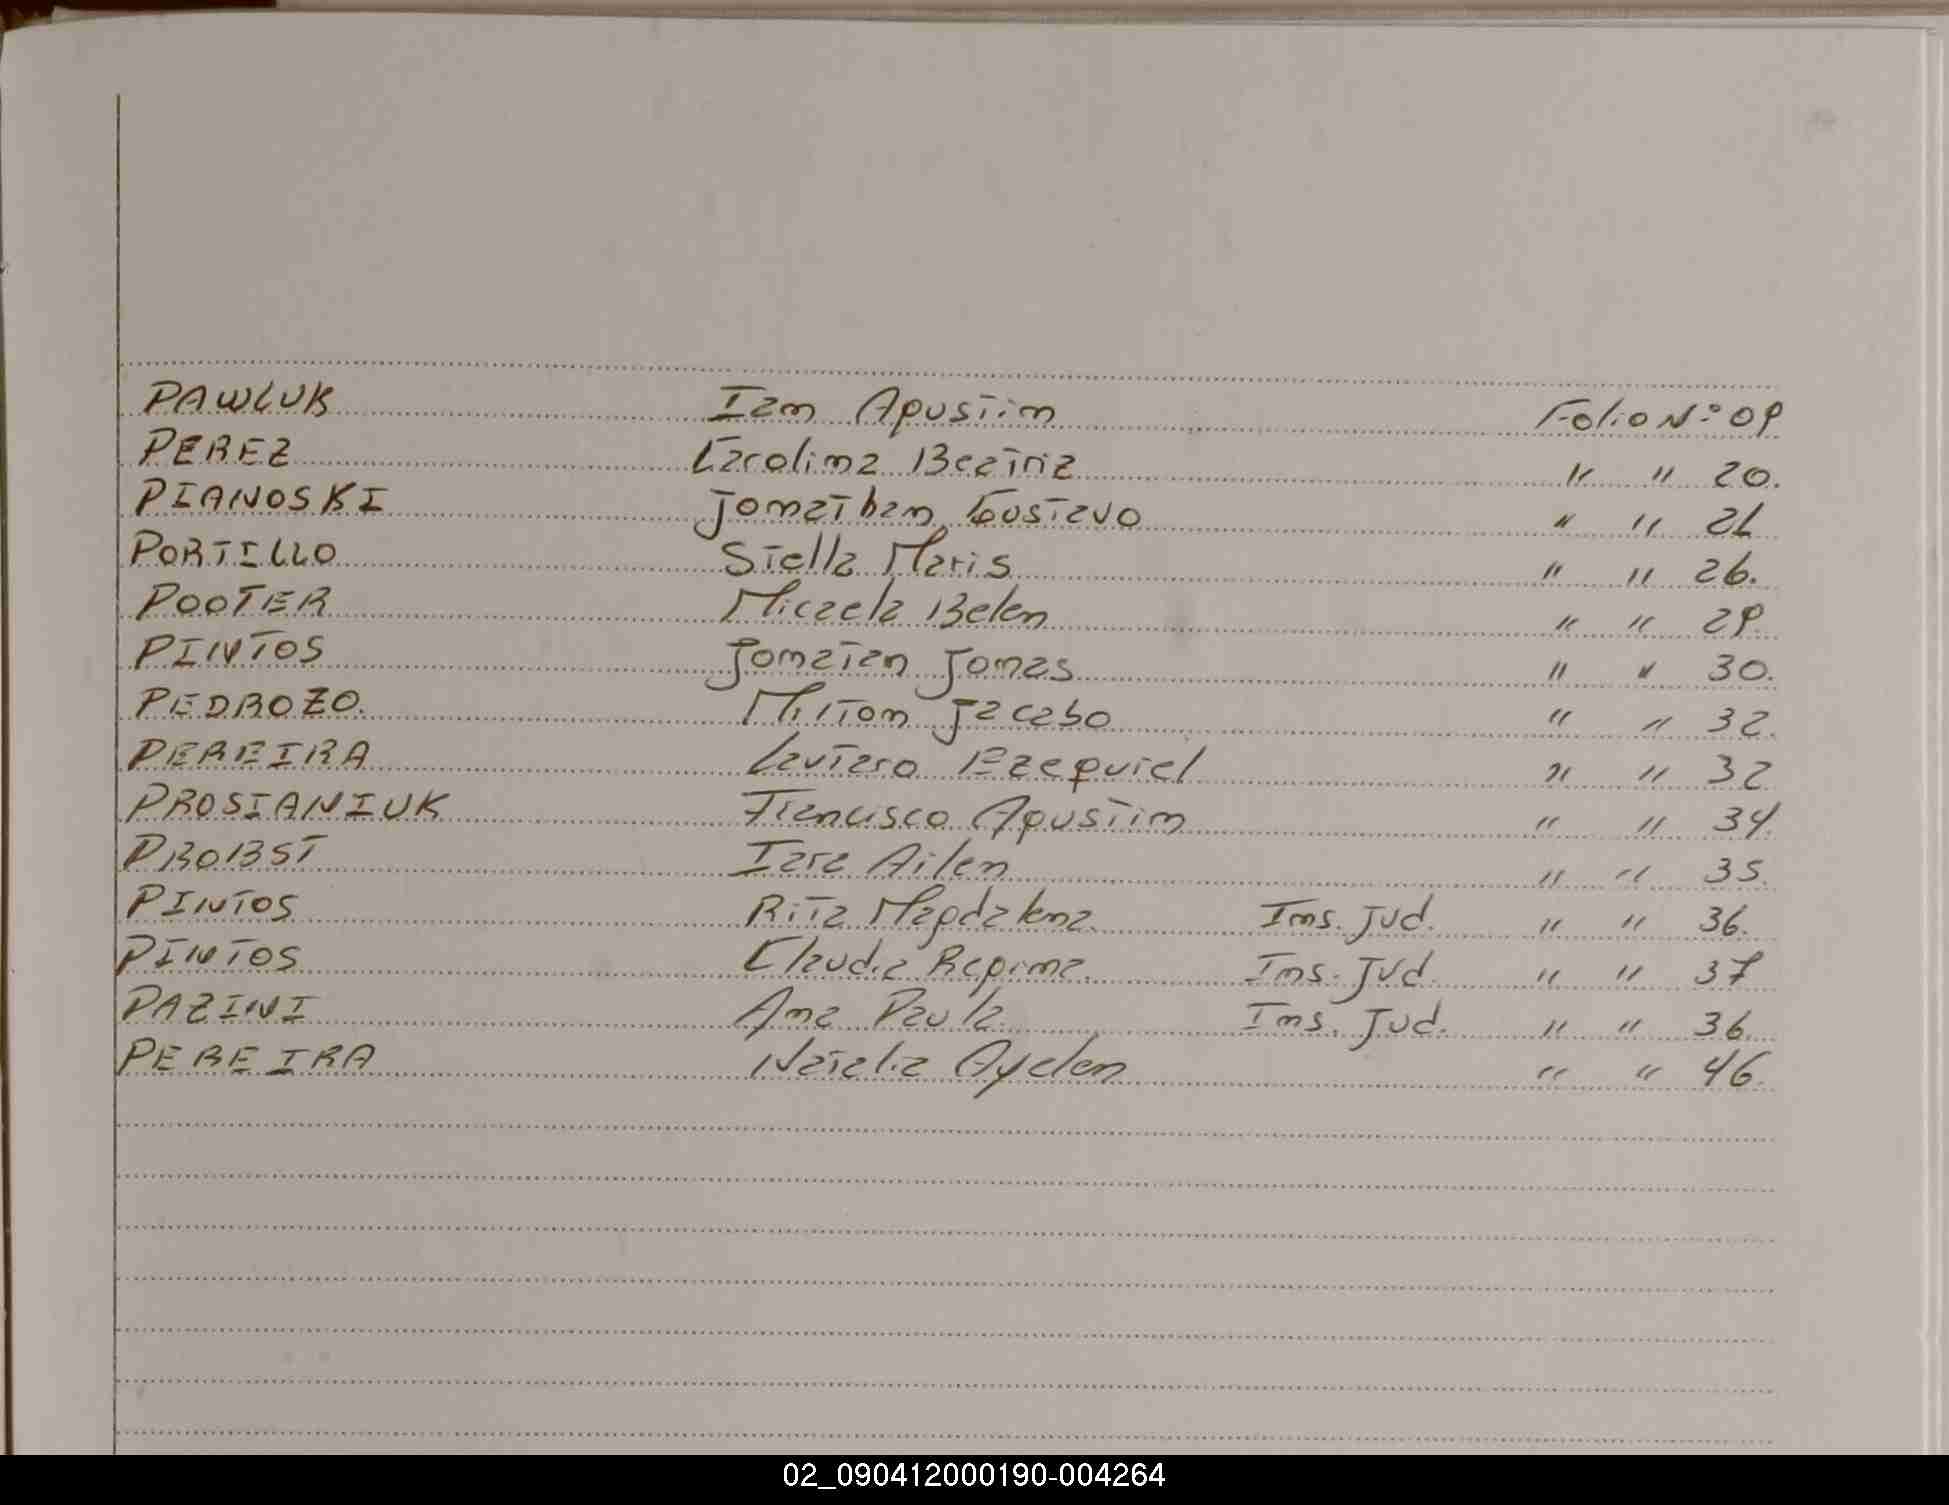 PAWLUK Ian Agustin Folio Nº 09
PEREZ Carolina Beatriz " " 20.
PIANOSKI Jonathan Gustavo " " 26
PORTILLO Stella Maris " " 26.
POOTER Micaela Belen " " 29
PINTOS Jonatan Jonas " " 30.
PEDROZO. Milton Jacabo " " 32.
PEREIRA Lautaro Ezequiel " " 32
PROSIANIUK Francisco Agustin " " 34.
PROBST Iara Ailen " " 35.
PINTOS Rita Magdalena. Ins. Jud. " " 36.
PINTOS Claudia Regina. Ins. Jud. " " 37
PAZINI Ana Paula Ins. Jud. " " 36.
PEREIRA Natalia Ayelen " " 46.
02_090412000190-004264